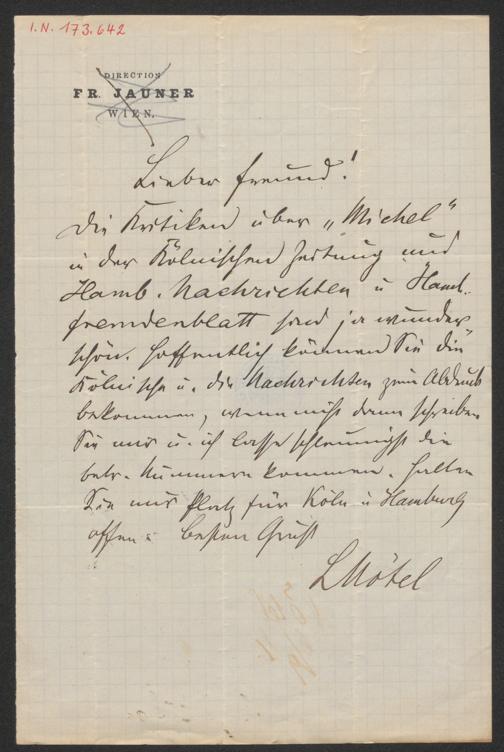 I.N. 173.642
DIRECTION
FR. JAUNER
WIEN.
Lieber Freund!
Die Kritiken über „Michel“
in der Kölnischen Zeitung und
Hamb. Nachrichten u Hamb.
fremdenblatt sind ja wunder
schön. Hoffentlich können Sie die
Kölnische u. die Nachrichten zum Abdruck
bekommen, wenn nicht dann schreiben
Sie mir u. ich lasse schleunigst die
betr. Nummern kommen. Halten
Sie nur Platz für Köln u Hamburg
offen u besten Gruß